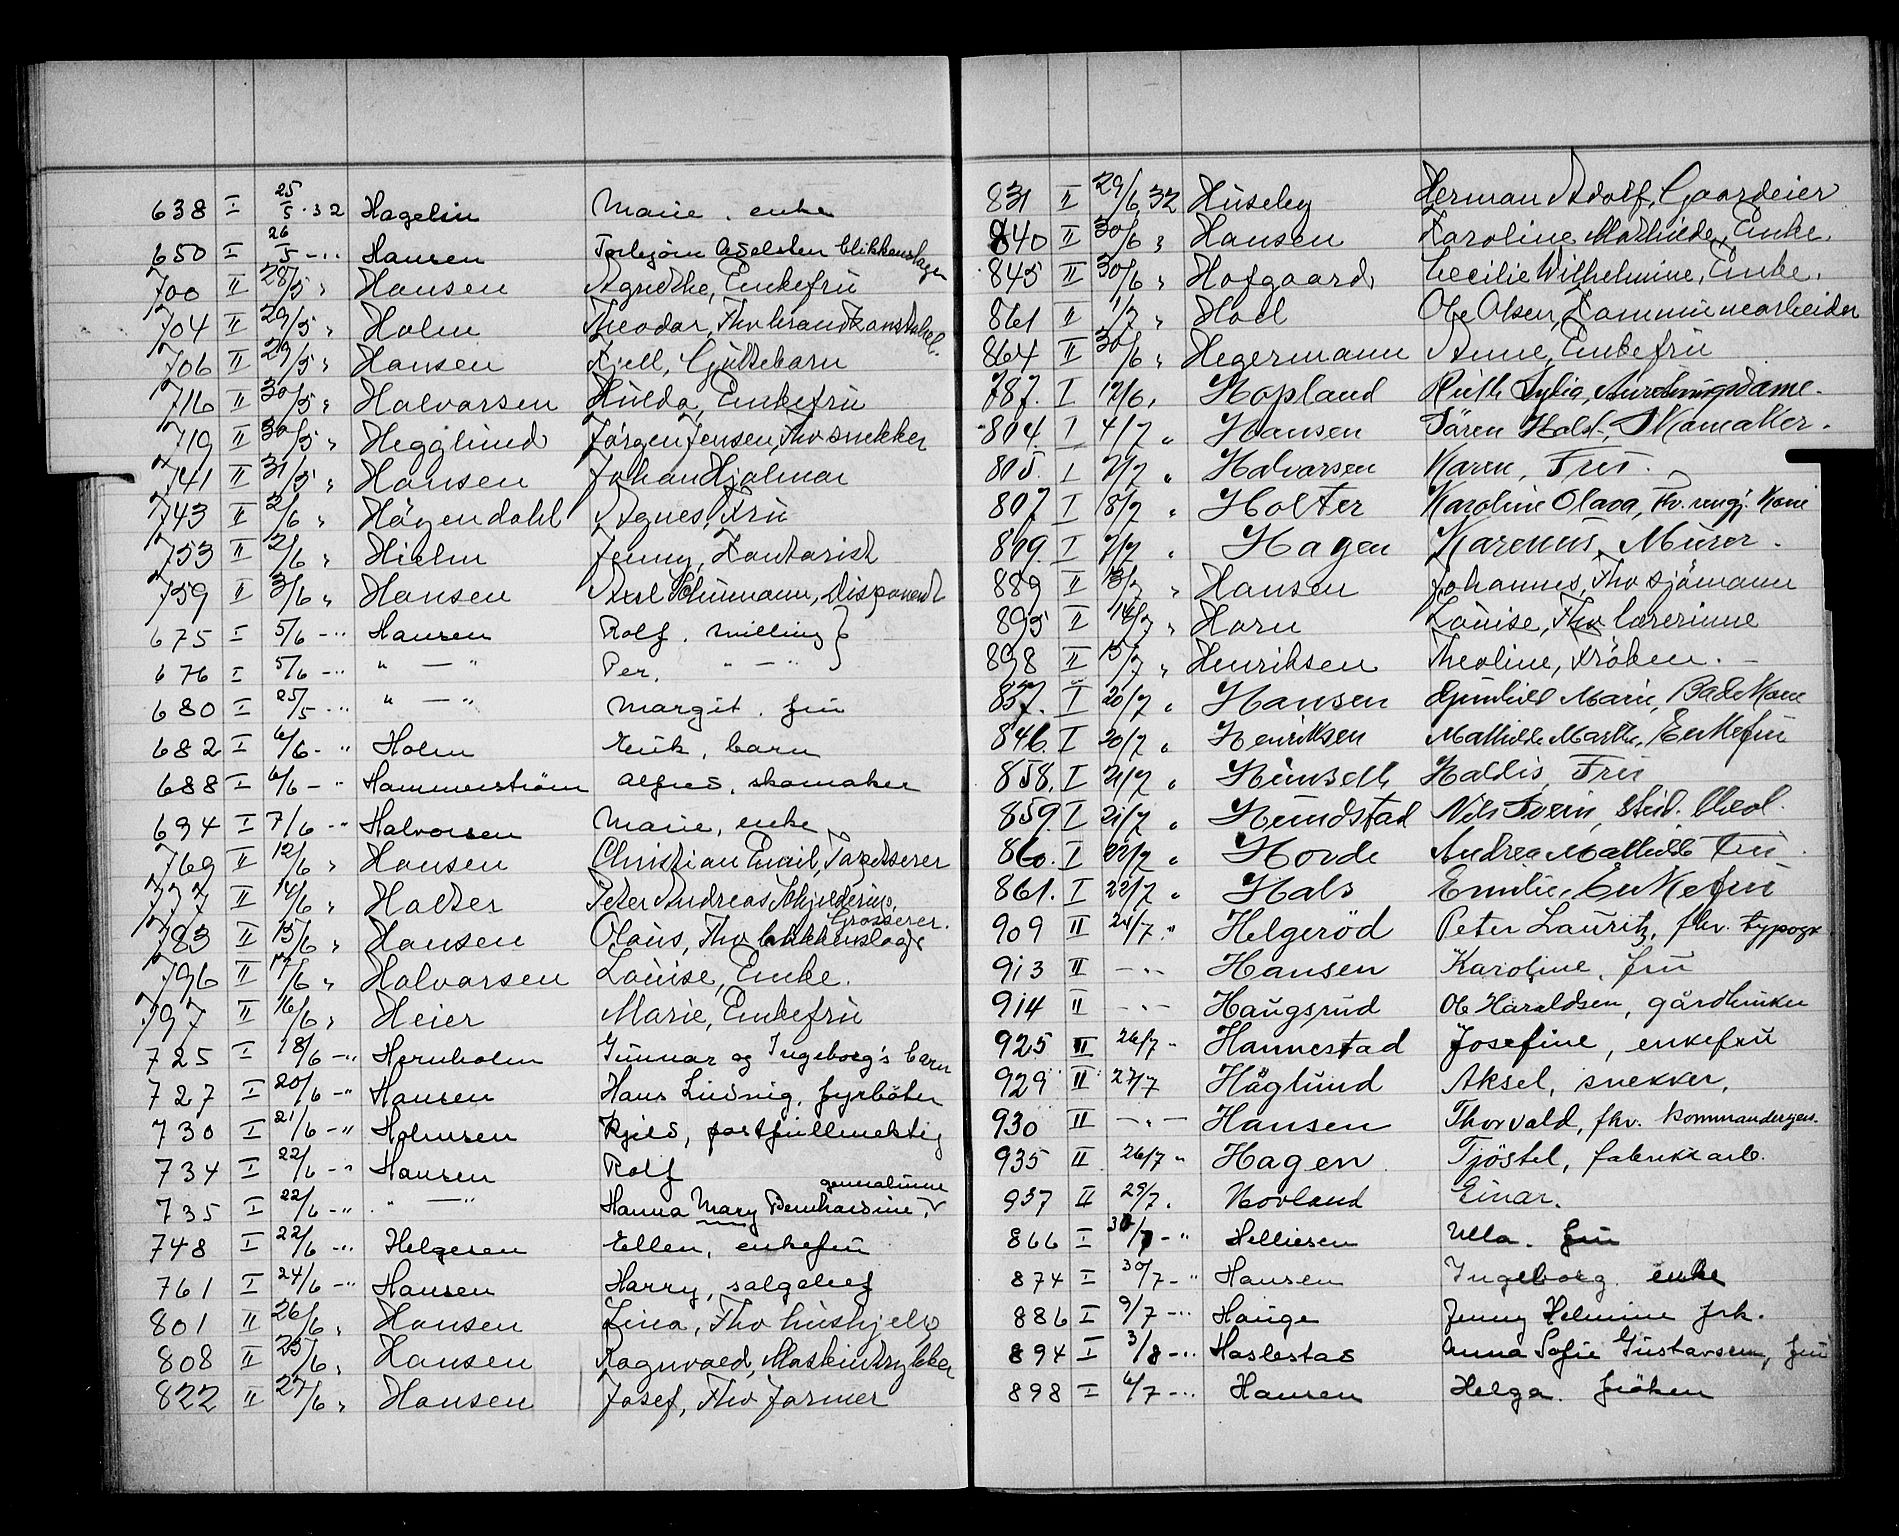 638 I 25/5 32 Hagelin Marie, enke
650 I 26/5 -" Hansen Torbjørn Adelsten blikkenslager
700 II 28/5 " Hansen Agnethe, Enkefru
704 II 29/5 " Holm Theodor, Fhv brandkonstabel.
706 II 29/5 " Hansen Kjell, Guttebarn
716 II 30/5 " Halvorsen Hulda, Enkefru
719 II 30/5 " Hegglund Jörgen Jensen, Fhv snekker
741 II 31/5 " Hansen Johan Hjalmar
743 II 2/6 " Högendahl Agnes, Fru
753 II 2/6 " Hielm Jenny, Kontorist
759 II 3/6 " Hansen Axel Schumann, Disponent
675 I 5/6 -" Hansen Rolf, tvilling }
676 I 5/6 -" " — " Per, " — "
680 I 25/5 -" " — " Margit, fru
682 I 6/6 -" Holm Erik, barn
688 I 6/6 -" Hammerstrøm Alfred, skomaker
694 I 7/6 -" Halvorsen Marie, enke
769 II 12/6 " Hansen Christian Emil, Tapetserer
777 II 14/6 " Holter Peter Andreas Schjelderup, Grosserer.
783 II 15/6 " Hansen Olaus, Fhv blikkenslager
796 II 17/6 " Halvorsen Louise, Enke.
797 II 16/6 " Heier Marie, Enkefru
725 I 18/6 -" Hernholm Gunnar og Ingeborg's barn
727 I 20/6 -" Hansen Hans Ludvig, fyrböter
730 I 21/6 -" Holmsen Kjeld, postfullmektig
734 I 22/6 -" Hansen Rolf
735 I 22/6 -" " — " Hanna Mary Bernhardine,
748 I 22/6 -" Helgesen Ellen, enkefru
761 I 24/6 -" Hansen Harry, salgschef
801 II 26/6 " Hansen Lina, Fhv hushjelp
808 II 25/6 " Hansen Ragnvald, Maskintrykker
822 II 27/6 " Hansen Josef, Fhv farmer
831 II 29/6 32 Huseby Herman Adolf, Gaardeier
840 II 30/6 " Hansen Karoline Mathilde, Enke.
845 II 30/6 " Hofgaard Cecilie Wilhelmine, Enke.
861 II 1/7 " Hoel Ole Olsen, Kommunearbeider
864 II 30/6 " Hegermann Anne, Enkefru
787. I 12/6 " Hopland Ruth Sylvia,
804. I 4/7 " Hansen Sören Holst, Skomaker.
805. I 7/7 " Halvorsen Karen, Fru.
807 I 8/7 " Holter Karoline Olava, Fv. rengj. Kone
819. I 7/7 " Hagen Karenus, Murer.
889 II 13/7 " Hansen Johannes, Fhv sjömann
895 II 14/7 " Horn Louise, Fhv lærerinne
898 II 15/7 " Henriksen Theoline, Fröken.
837. I 20/7 " Hansen Gunhild Marie, BadeKone
846. I 20/7 " Henriksen Mathilde Marthe, Enkefru
858. I 21/7 " Hunsell Haldis, Fru
859. I 21/7 " Hundstad Nils Svein, stud. theol.
860. I 22/7 " Hovde Andrea Mathilde Fru
861. I 22/7 " Hals Emilie, Enkefru
909 II 24/7 " Helgeröd Peter Lauritz, fhv. typogr
913 II -"- Hansen Karoline, fru
914 II -"- Haugsrud Ole Haraldsen, gårdbruker
925 II 26/7 " Hannestad Josefine, enkefru
929 II 27/7 Höglund Aksel, snekker.
930 II -"- Hansen Thorvald, fhv. kommandersjers.
935 II 26/7 " Hagen Tjöstel, fabrikkarb.
937 II 29/7 " Hovland Einar.
866 I 30/7 -" Helliesen Ulla. fru
874 I 30/7 -" Hansen Ingeborg. enke
886 I 9/7 -" Hauge Jenny Helmine frk.
894 I 3/8 -" Haslestad Anna Sofie Gustavsen, fru
898 I 6/7 -" Hansen Helga. fröken